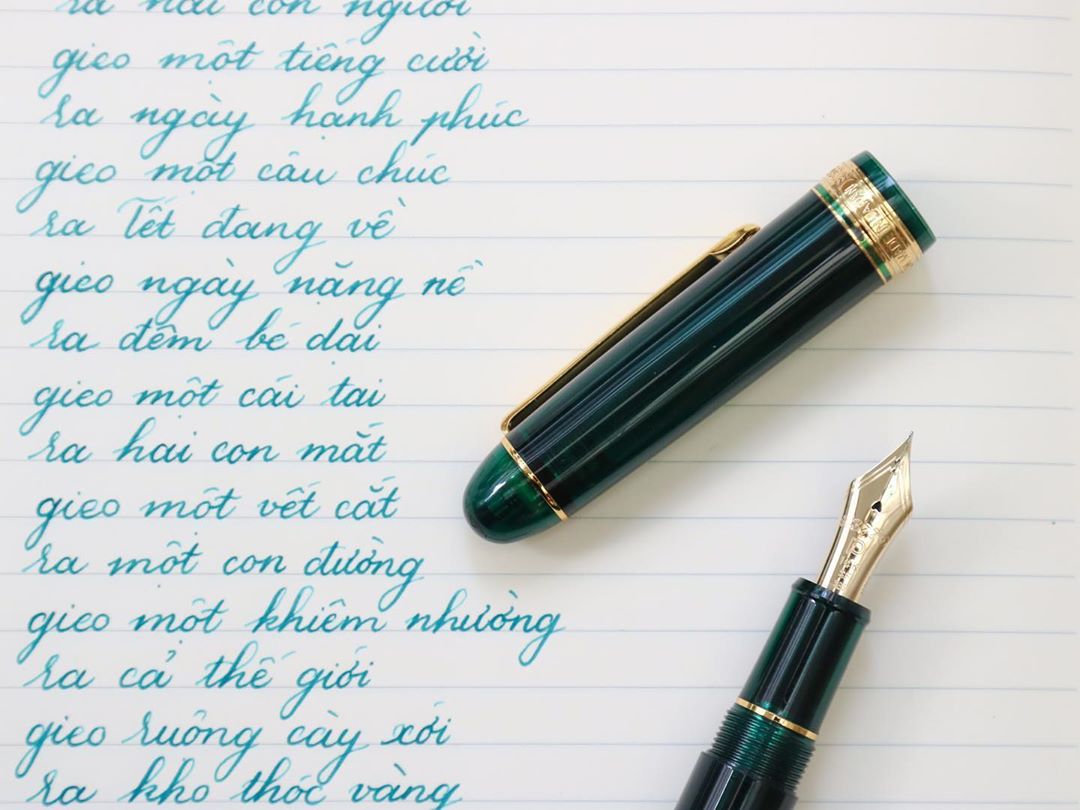 ra hai con người
gieo một tiếng cười
ra ngày hạnh phúc
gieo một câu chúc
ra Tết đang về
gieo ngày nặng nề
ra đêm bé dại
gieo một cái tai
ra hai con mắt
gieo một vết cắt
ra một con đường
gieo một khiêm nhường
ra cả thế giới
gieo ruộng cày xới
ra kho thóc vàng